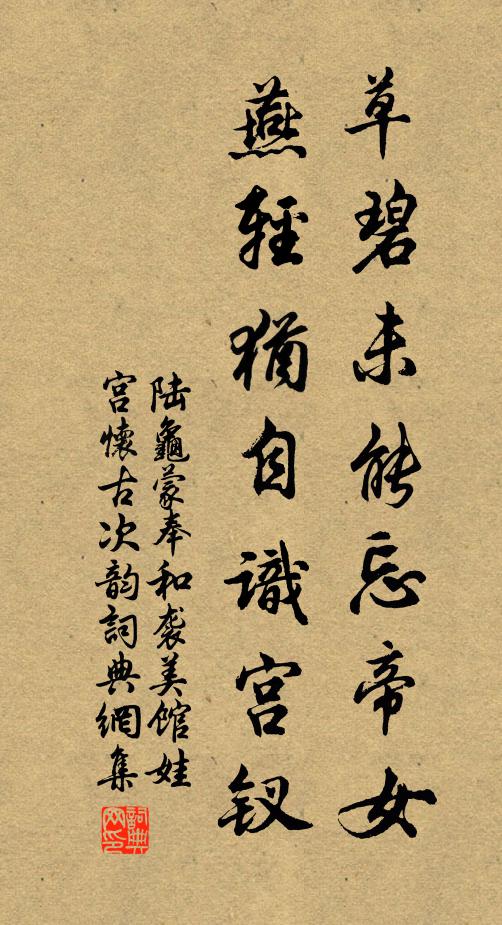 草碧未能忘帝女
燕轻犹自識宫钗
陆龜蒙奉和袭美馆娃
宫懷古次韵詞典網集
詞典网印